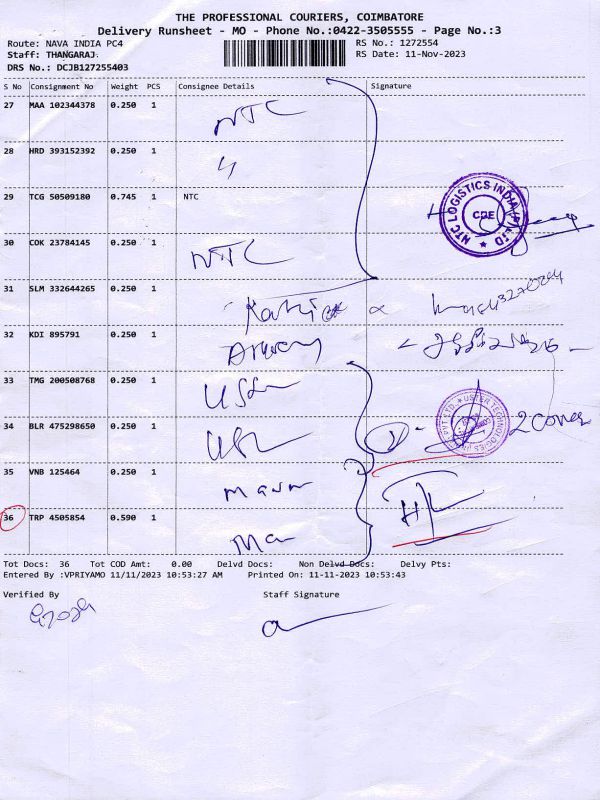 THE PROFESSIONAL COURIERS, COIMBATORE
Delivery Runsheet - MO - Phone No.:0422-3505555 - Page No.:3
Route: NAVA INDIA PC4 RS No.: 1272554
Staff: THANGARAJ. RS Date: 11-Nov-2023
DRS No.: DCJB127255403
S No Consignment No Weight PCS Consignee Details Signature
27 MAA 102344378 0.250 1 NTC
28 HRD 393152392 0.250 1
29 TCG 50509180 0.745 1 NTC
NTC LOGISTICS INDIA (P) LTD
CBE
30 COK 23784145 0.250 1 NTC
31 SLM 332644265 0.250 1
32 KDI 895791 0.250 1
33 TMG 200508768 0.250 1
34 BLR 475298650 0.250 1 2 Cover
USTER TECHNOLOGIES
35 VNB 125464 0.250 1
36 TRP 4505854 0.590 1
Tot Docs: 36 Tot COD Amt: 0.00 Delvd Docs: Non Delvd Docs: Delvy Pts:
Entered By :VPRIYAMO 11/11/2023 10:53:27 AM Printed On: 11-11-2023 10:53:43
Verified By Staff Signature